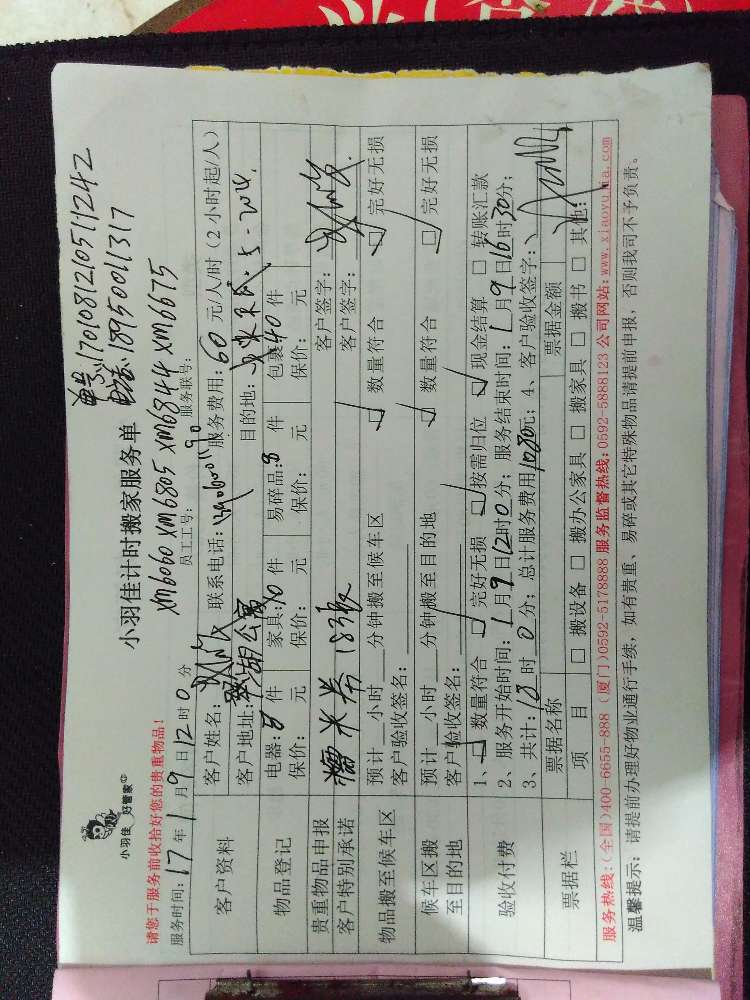 单号:17010812105111242
电话:18950011317
小羽佳 好管家
小羽佳计时搬家服务单
请您于服务前收拾好您的贵重物品!
XM6060 XM6805 XM6844 XM6675
服务时间:17年1月9日12时0分 员工工号: 服务联号:
客户资料
客户姓名: 联系电话: 服务费用:60元/人/时(2小时起/人)
客户地址: 湖公寓 目的地:
物品登记
电器:8件 家具:10件 易碎品:8件 包裹40件
保价: 元 保价: 元 保价: 元 保价: 元
贵重物品申报 客户签字:
客户特别承诺 客户签字:
物品搬至候车区
预计 小时 分钟搬至候车区 数量符合 完好无损
客户验收签名:
候车区搬至目的地
预计 小时 分钟搬至目的地 数量符合 完好无损
客户验收签名:
验收付费
1、数量符合 完好无损 按需归位 现金结算 转账汇款
2、服务开始时间:1月9日12时0分;服务结束时间:1月9日16时30分;
3、共计:18时0分;总计服务费用1080元;4、客户验收签字:
票据栏
票据名称 票据金额
项目 搬设备 搬办公家具 搬家具 搬书 其他:
服务热线:(全国)400-6655-888 (厦门)0592-5178888 服务监督热线:0592-5888123 公司网站:www.xiaoyujia.com
温馨提示:请提前办理好物业通行手续,如有贵重、易碎或其它特殊物品请提前申报,否则我司不予负责。